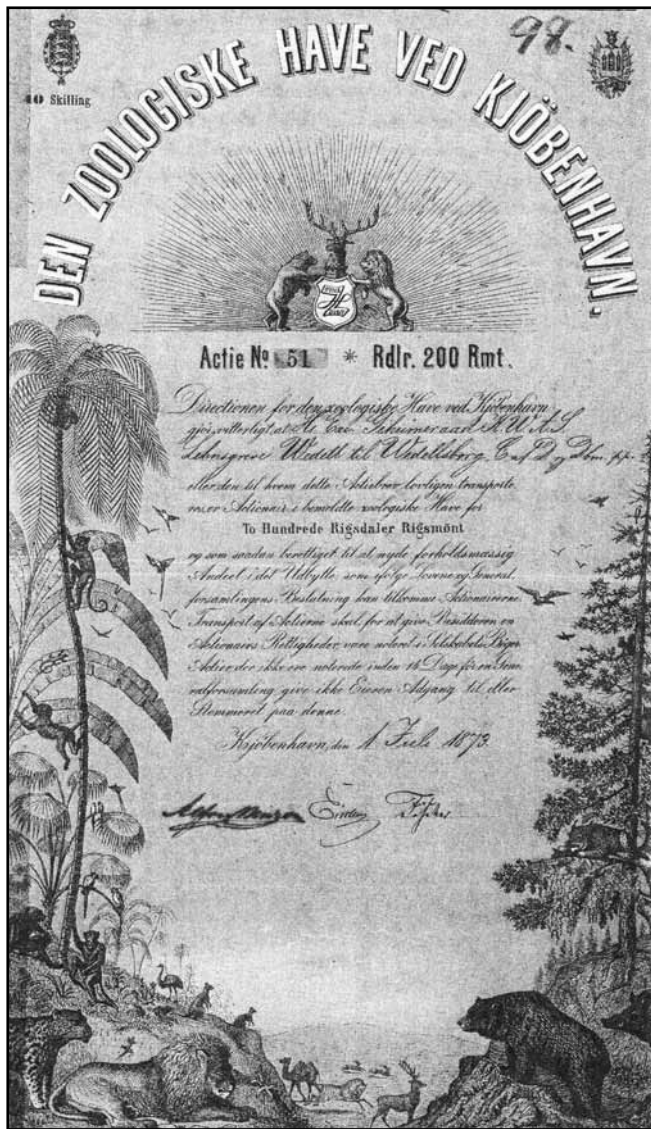 98.
40 Skilling
DEN ZOOLOGISKE HAVE VED KJÖBENHAVN.
Actie No 51 * Rdlr. 200 Rmt.
Directionen for den zoologiske Have ved Kjöbenhavn
gjör vitterligt at
Lehnsgreve Wedell til Wedellsborg
eller den til hvem dette Actiebrev lovligen transporte
res, er Actionair i bemeldte zoologiske Have for
To Hundrede Rigsdaler Rigsmönt
og som saadan berettiget til at nyde forholdsmæssig
Andeel i det Udbytte, som ifølge Lovene og General,
forsamlingens Beslutning kan tilkomme Actionairerne.
Transport af Actierne skal, for at give Besidderen en
Actionairs Rettigheder, være noteret i Selskabets Böger
Actier, der ikke ere noterede inden 14 Dage för en Gene
ralforsamling give ikke Eieren Adgang til eller
Stemmeret paa denne.
Kjöbenhavn, den 1 Juli 1873.